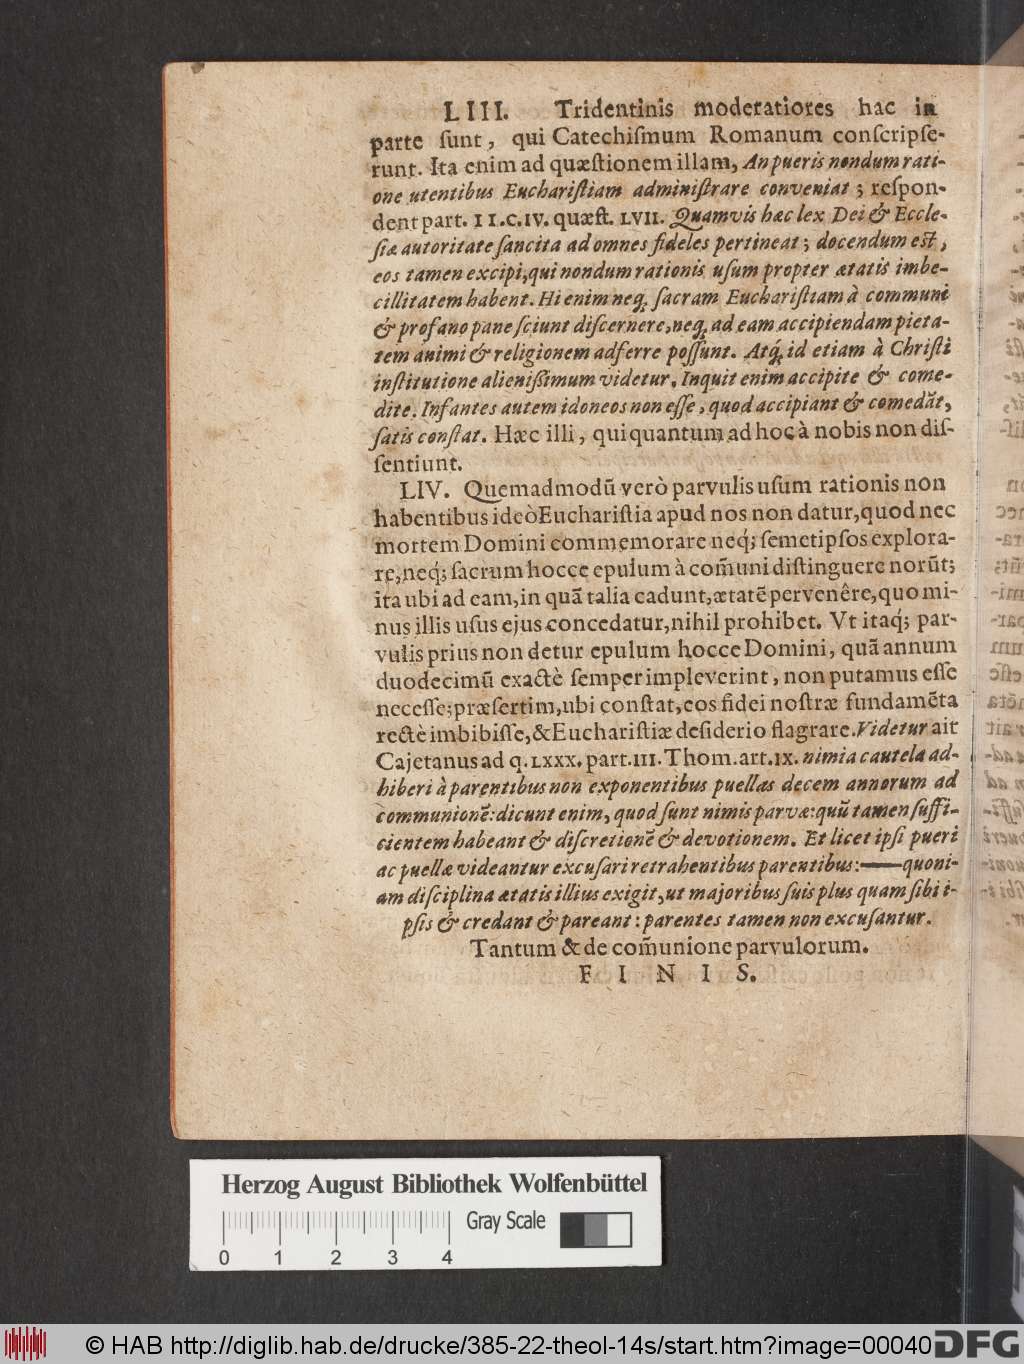 LIII. Tridentinis moderatiores hac in
parte ſunt, qui Catechiſmum Romanum conſcripſe-
runt. Ita enim ad quæſtionem illam, An pueris nondum rati-
one utentibus Euchariſtiam adminiſtrare conveniat; reſpon-
dent part. II. C. IV. quæſt. LVII. Quamvis hæc lex Dei & Eccle-
ſiæ autoritate ſancita ad omnes fideles pertineat; docendum eſt,
eos tamen excipi, qui nondum rationis uſum propter ætatis imbe-
cillitatem habent. Hi enim neq; ſacram Euchariſtiam à communi
& profano pane ſciunt diſcernere, neq; ad eam accipiendam pieta-
tem animi & religionem adferre poſſunt. Atq́; id etiam à Chriſti
inſtitutione alieniſſimum videtur, Inquit enim accipite & come-
dite. Infantes autem idoneos non eſſe, quod accipiant & comedãt,
ſatis conſtat. Hæc illi, qui quantum ad hoc à nobis non diſ-
ſentiunt.
LIV. Quemadmodũ verò parvulis uſum rationis non
habentibus ideò Euchariſtia apud nos non datur, quod nec
mortem Domini commemorare neq́; ſemetipſos explora-
re, neq́; ſacrum hocce epulum à com̃uni diſtinguere norũt;
ita ubi ad eam, in quã talia cadunt, ætatẽ pervenêre, quo mi-
nus illis uſus ejus concedatur, nihil prohibet. Vt itaq́; par-
vulis prius non detur epulum hocce Domini, quã annum
duodecimũ exactè ſemper impleverint, non putamus eſſe
neceſſe; præſertim, ubi conſtat, eos fidei noſtræ fundamẽta
rectè imbibiſſe, & Euchariſtiæ deſiderio flagrare. Videtur ait
Cajetanus ad q. LXXX. part. III. Thom. art. IX. nimia cautela ad-
hiberi à parentibus non exponentibus puellas decem annorum ad
communionẽ: dicunt enim, quod ſunt nimis parvæ: quũ tamen ſuffi-
cientem habeant & diſcretionẽ & devotionem. Et licet ipſi pueri
ac puellæ videantur excuſari retrahentibus parentibus: —— quoni-
am diſciplina ætatis illius exigit, ut majoribus ſuis plus quam ſibi i-
pſis & credant & pareant: parentes tamen non excuſantur.
Tantum & de com̃unione parvulorum.
FINIS.
Herzog August Bibliothek Wolfenbüttel
Gray Scale
0 1 2 3 4
© HAB http://diglib.hab.de/drucke/385-22-theol-14s/start.htm?image=00040
DFG